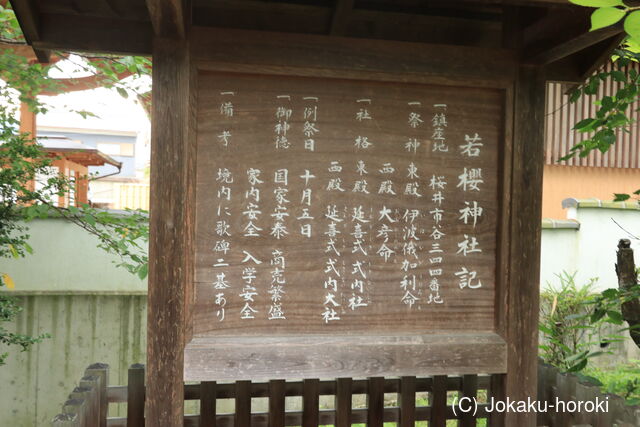 若櫻神社記
一鎮座地 桜井市谷三四四番地
一祭神 東殿 伊波俄加利命
西殿 大彦命
一社格 東殿 延喜式 式内社
西殿 延喜式 式内大社
一例祭日 十月五日
一御神徳 国家安泰 商売繁盛
家内安全 入学安全
一備考 境内に歌碑二基あり
(C) Jokaku-horoki